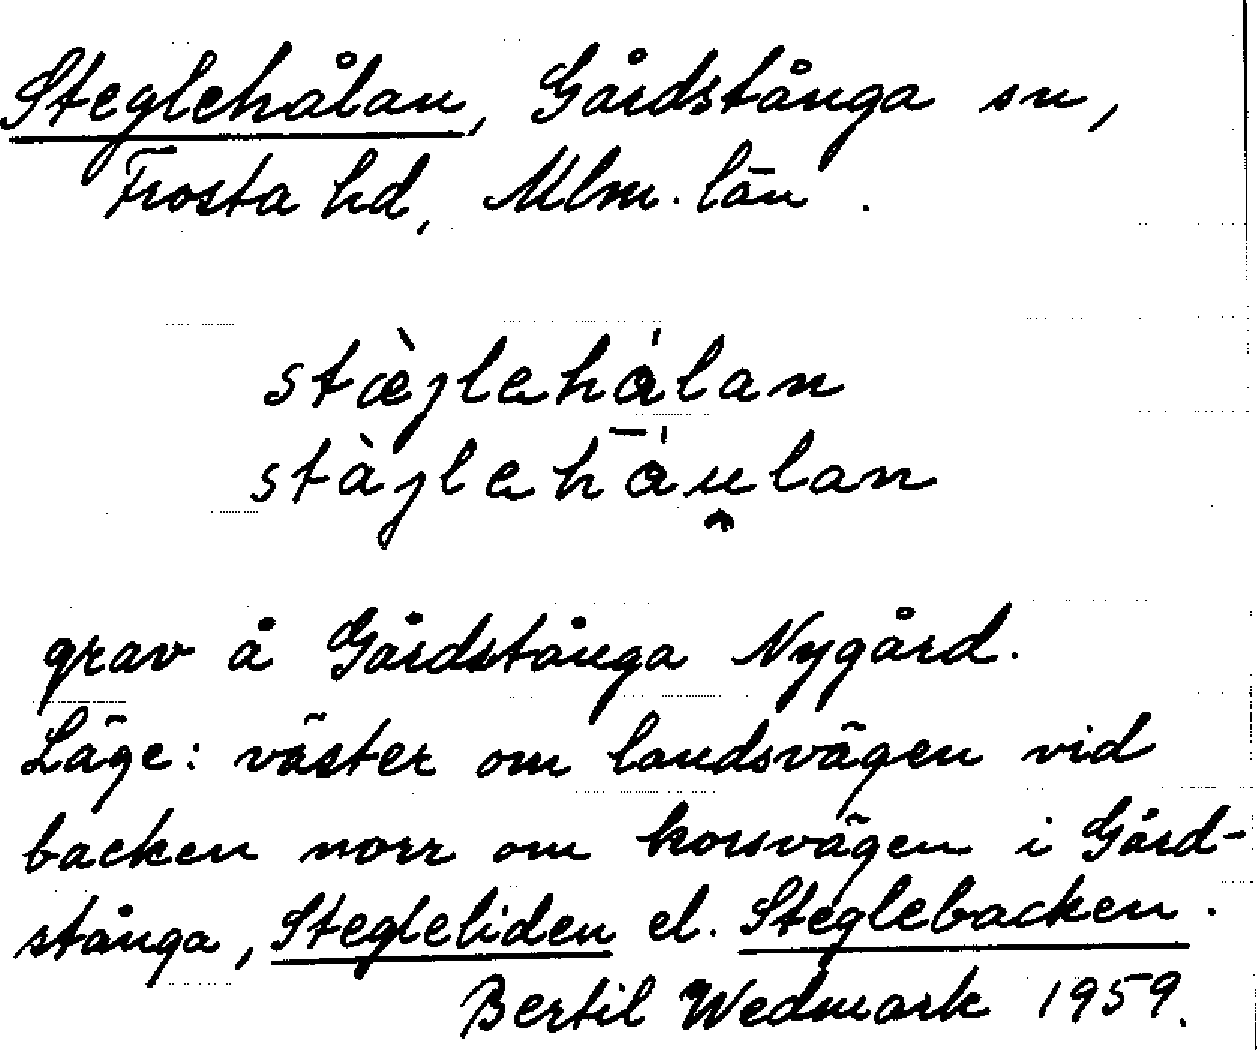 Steglehålan, Gårdstånga sn,
Frosta hd, Mlm. län.
stæ̀jlehá̵lan
stàjlehāu̯lan
grav å Gårdstånga Nygård.
Läge: väster om landsvägen vid
backen norr om korsvägen i Gård-
stånga, Stegleliden el. Steglebacken.
Bertil Wedmark 1959.